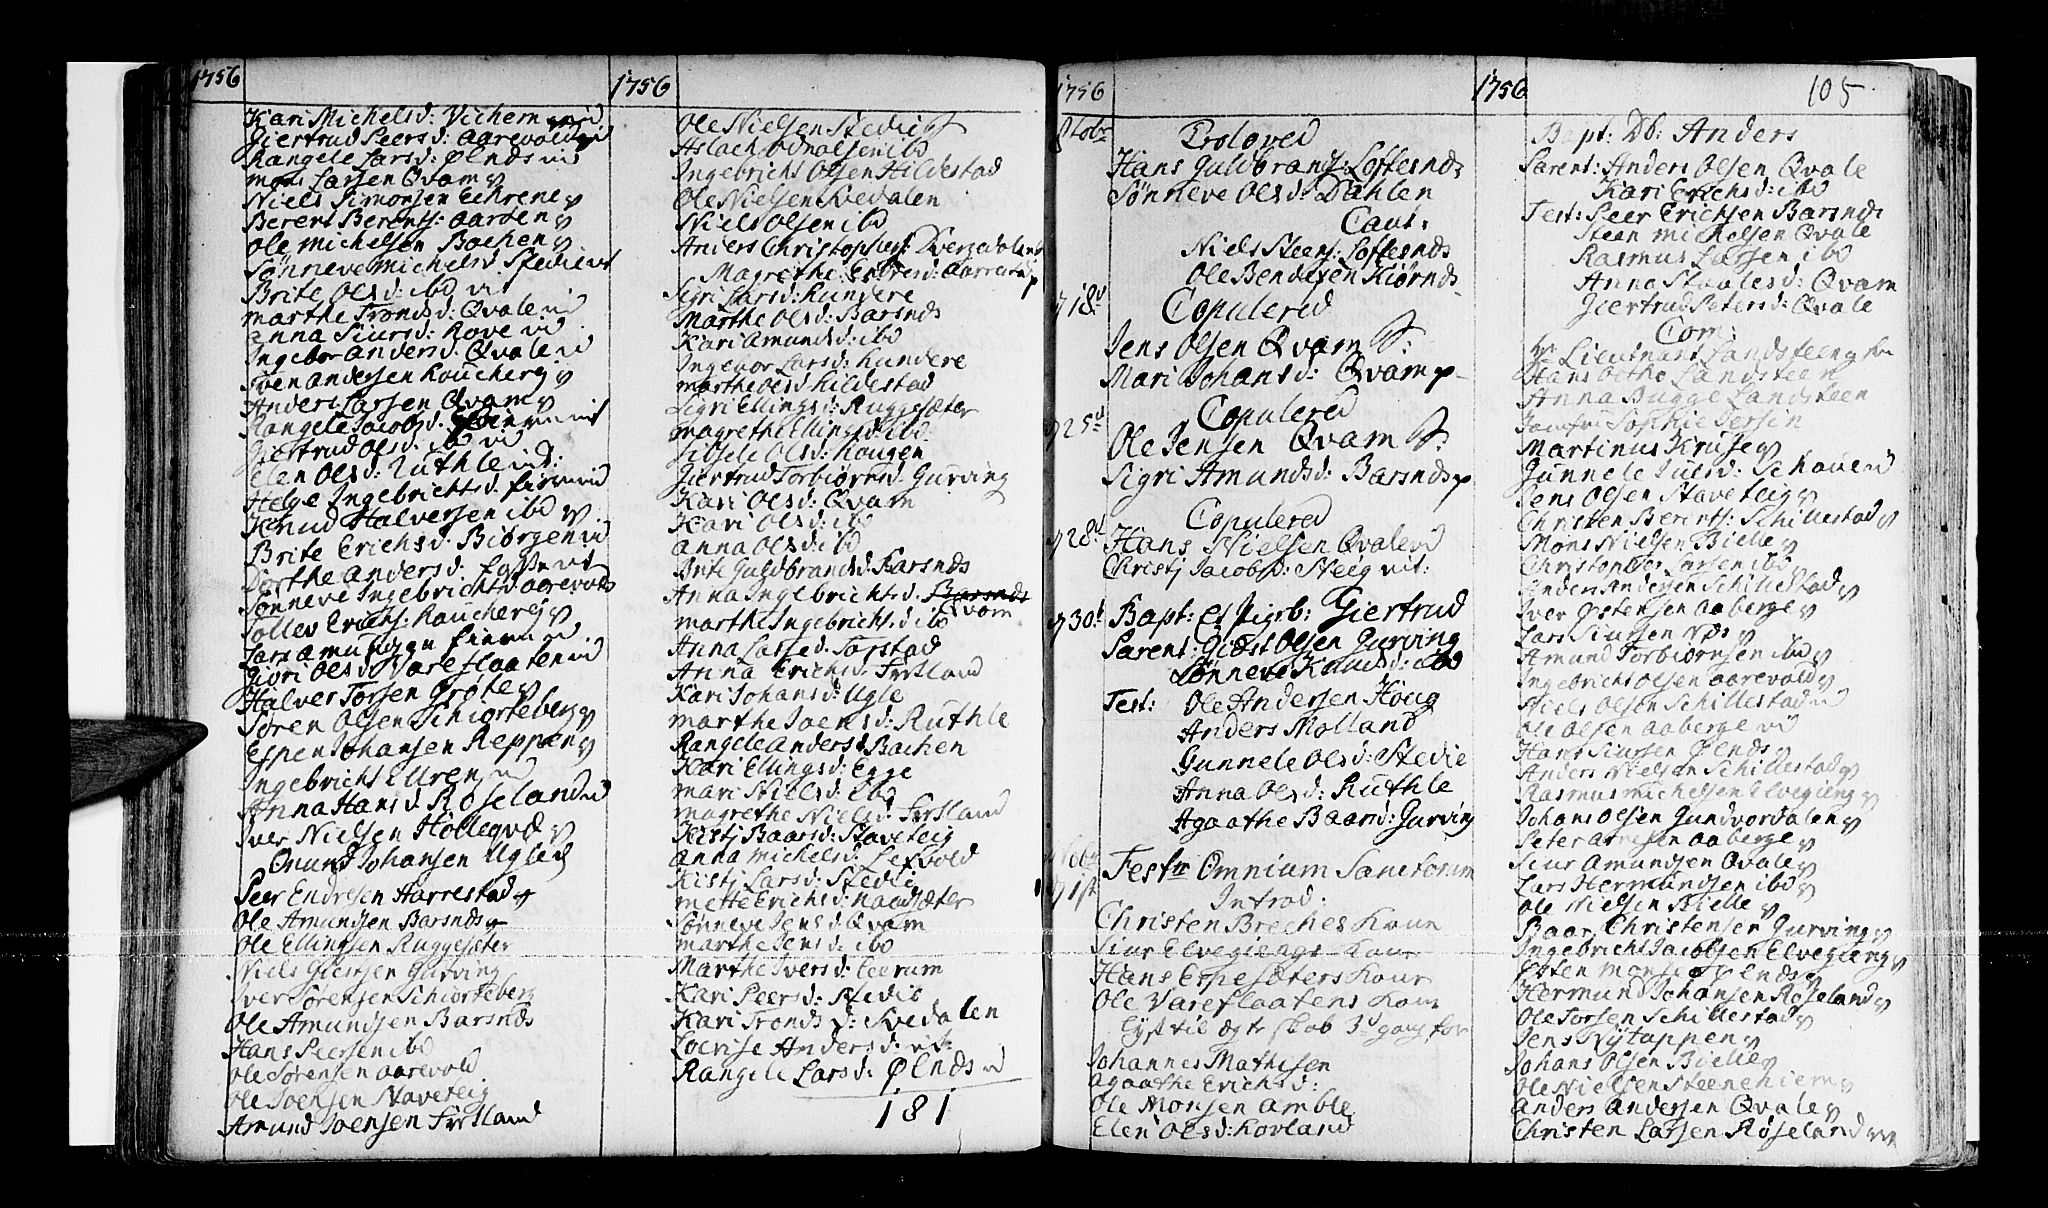 1756
Kari Michelsd: Vichem
Giertrud Peersd: Aarevold
Rangele Larsd: Ølnds
Mons Larsen Qvam
Niels Simonsen Eehrene
Berent Berents: Aarsen
Ole Michelsen Bachen
Sønneve Michelsd: Stedie
Brite Olsd: ibd
Marthe Tronds d: Qvale
Anna Siursd: Rove
Ingebor Andersd: Qvale
Sven Andersen Loucherg
Anders Larsen Qvam
Rangele Jacobsd:
Giertrud Olsd: ibd
Elen Olsd: Ruthle
Helge Ingebrichtsd:
Knud Halversen ibd
Brite Erichsd: Biørgen
Dorthe Andersd:
Sønneve Ingebrichtsd: Aarevold
Tollev Erichs: Raucherg
Lars Amundsen
Giøri Olsd: Vareflaaten
Halver Torsen Grøte
Søren Olsen Schiorteberg
Espen Johansen Reppæn
Ingebricht Ellrens
Anna Hansd: Røseland
Iver Nielsen Hollegvd
Omund Johansen Ugle
Peer Endresen Harrestad
Ole Amundsen Barsnds
Ole Ellingsen Ruggesæter
Niels Giertsen Gurving
Iver Sørensen Schiorteberg
Ole Amundsen Barsnds
Hans Peersen ibd
Ole Sørensen Aarevold
Ole Joensen Staveteig
Amund Joensen Frstland
1756
Ole Nielsen Stedie
Aslach Odnolsen ibd
Ingebricht Olsen Hildestad
Ole Nielsen Svedalen
Niels Olsen ibd
Anders Christophers: Dvergedalen
Magrethe Endresd: Aarrestad
Sigri Larsd: Kundere
Marthe Olsd: Barsnds
Kari Amundsd: ibd
Ingebor Larsd: Kundere
Marthe Olsd: Hildestad
Sigri Ellingsd: Ruggesæter
Magrethe Ellingsd: ibd
Sidsele Olsd: Haugen
Giertrud Torbiørnsd: Gurving
Kari Olsd: Qvam
Kari Olsd: ibd
Anna Olsd: ibd
Brite Guldbrandsd: Barsnds
Anna Ingebrichtsd: Barsnds
Qvam
Marthe Ingebrichtsd: ibd
Anna Larsd: Torstad
Anna Erichsd: Frstland
Kari Johansd: Ugle
Marthe Joensd: Ruthle
Rangele Andersd: Bachen
Kari Ellingsd: Egge
Mari Nielsd: ibd
Magrethe Nielsd: Frstland
Kistj Baarsd: Staveteig
Anna Michelsd: Lefvold
Kistj Larsd: Stedie
Mette Erichsd: Naadsæter
Sønneve Jensd: Qvam
Marthe Jensd: ibd
Marthe Iversd: Leerum
Kari Peersd: Stedie
Kari Tronds d: Svedalen
Lovrise Andersd:
Rangele Larsd: Ølnds
181
1756
Troloved
Hans Guldbrands: Loftesnds
Sønneve Olsd: Dahlen
Caut:
Niels Steens: Loftesnds
Ole Bendixen Kiørnds
18d
Copulered
Jens Olsen Qvam S:
Mari Johansd: Qvam p
25d
Copulered
Ole Jensen Qvam S:
Sigri Amundsd: Barsnds p
28d
Copulered
Hans Nielsen Qvale
Christj Jacobsd: Steeg
30d
Bapt: Pigeb: Giertrud
Parent: Giæst Olsen Gurving
Sønneve Knudsd: ibd
Test: Ole Andersen Houg
Anders Molland
Gunnele Olsd: Stedie
Anna Olsd: Ruthle
Agaathe Baarsd: Gurving
Festu Omnium Sanctorum
Introd:
Christen Breches Konn
Siur Elvegiengs Konn
Hans Espesæters Konn
Ole Vareflaatens Kone
Lyst til ægteskab 3d gang for
Johannes Mathisen
Agaathe Erichsd:
Ole Monsen Amble
Elen Olsd: Kovland
1756
105
Bapt: Db: Anders
Parent: Anders Olsen Qvale
Kari Erichsd: ibd
Test: Peer Erichsen Barsnds
Steen Michelsen Qvale
Rasmus Larsen ibd
Anna Staalesd: Qvam
Giertrud Petersd: Qvale
Com:
Hr Lieutnant Landsteen
Hans Ottho Landsteen
Anna Bugge Landsteen
Jomfru Sophie Persin
Martinus Kruse
Gunnele Juls d: Schaue
Jens Olsen Staveteig
Christen Berents: Schillestad
Mons Nielsen Bielle
Christopher Larsen ibd
Anders Andersen Schillestad
Iver Østensen Aaberge
Lars Siursen Nds
Amund Torbiørnsen ibd
Ingebricht Olsen Aarevold
Niels Olsen Schillestad
Ole Olsen Aaberge
Hans Siursen Ølnds
Anders Nielsen Schillestad
Rasmus Michelsen Elvegieng
Johans Olsen Gundvordalen
Peter Arnesen Aaberge
Siur Amundsen Qvale
Lars Hermundsen ibd
Ole Nielsen Bielle
Baar Christensen Gurving
Ingebricht Jacobsen Elvegieng
Østen Monsen Ølnds
Hermund Johansen Røseland
Ole Torsen Schillestad
Jens Nytappen
Johans Olsen Bielle
Ole Nielsen Steenehiem
Anders Andersen Qvale
Christen Larsen Røseland